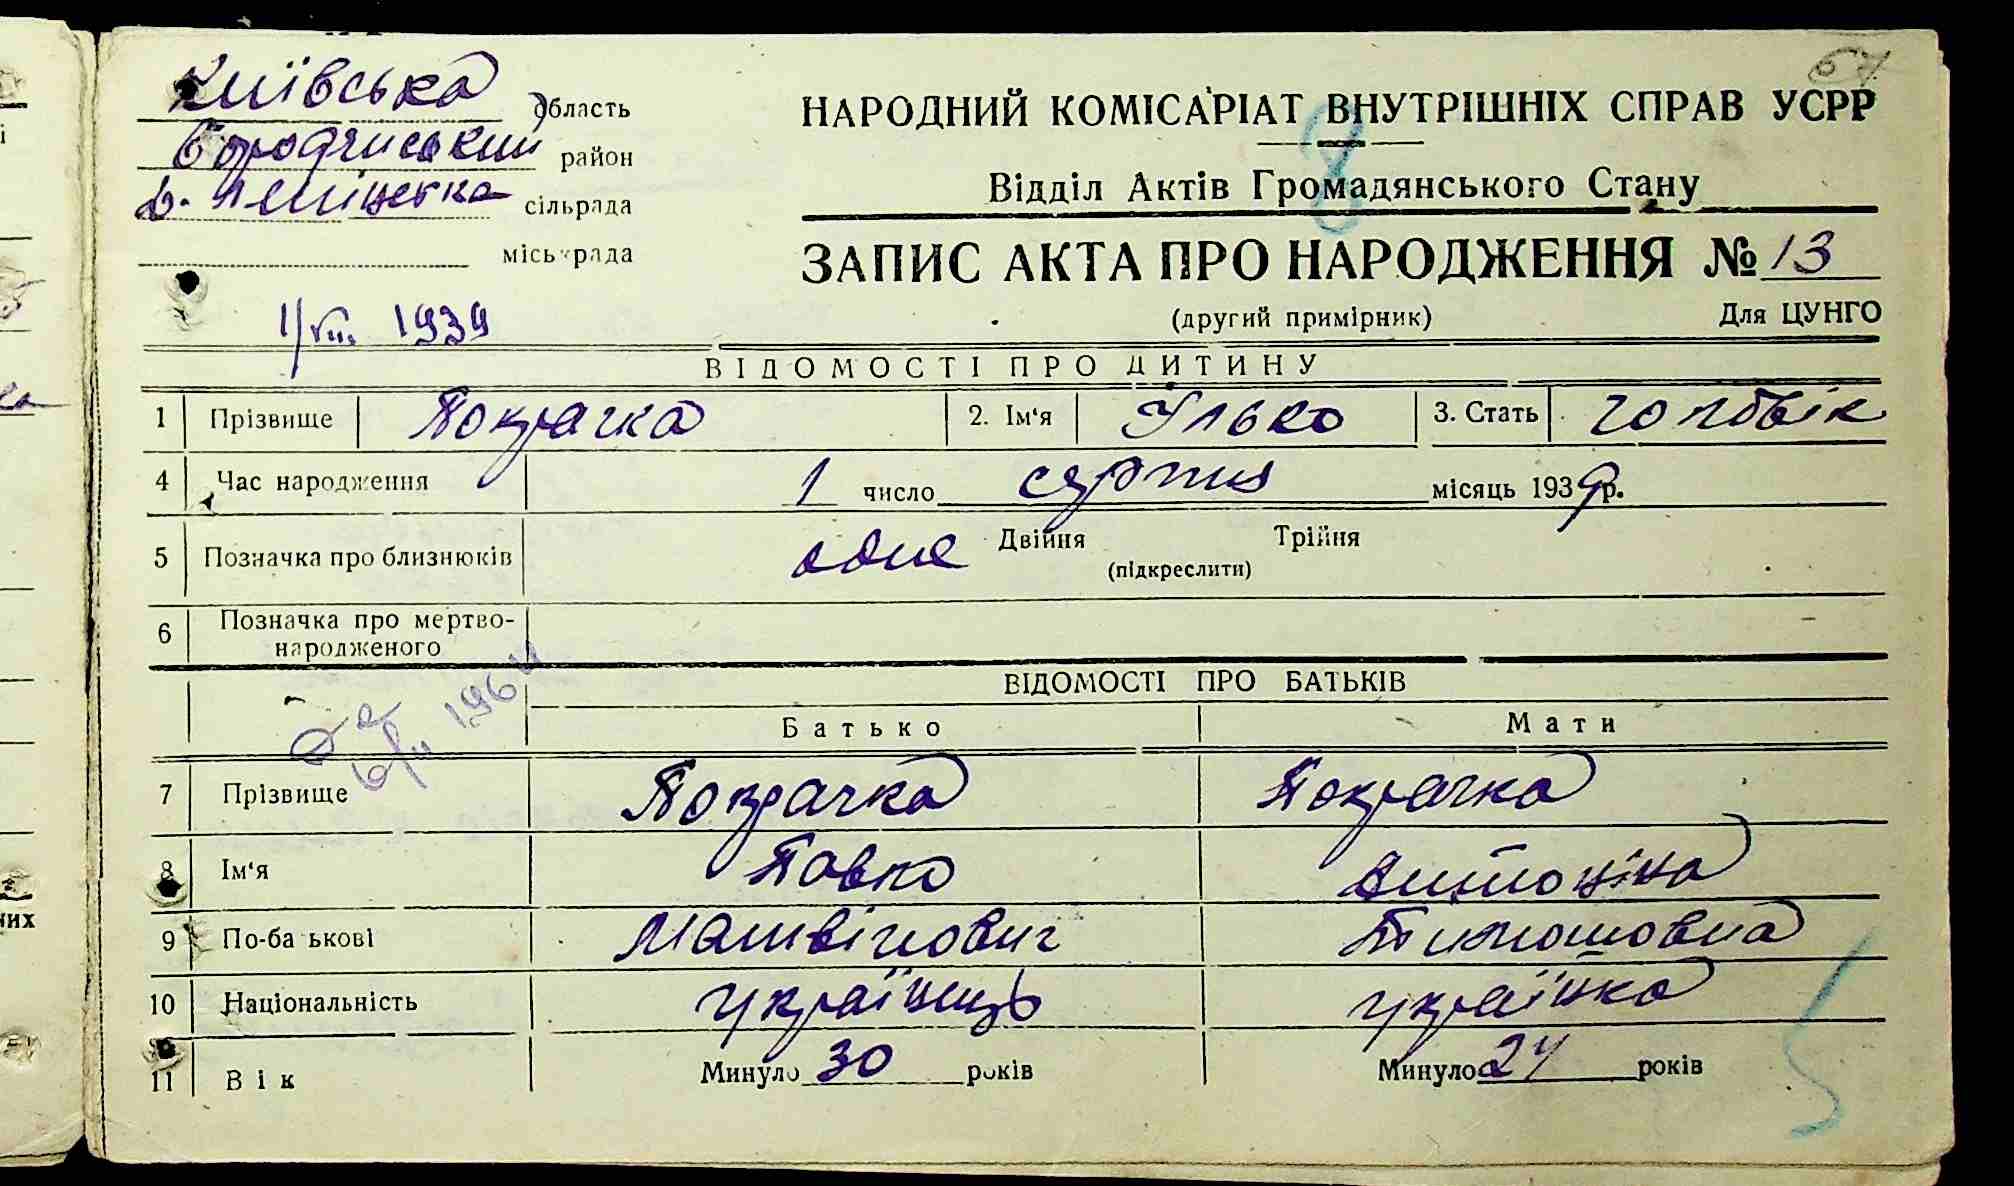 Київська область
Бородянський район
сільрада
міськрада
НАРОДНИЙ КОМІСАРІАТ ВНУТРІШНІХ СПРАВ УСРР
Відділ Актів Громадянського Стану
ЗАПИС АКТА ПРО НАРОДЖЕННЯ № 13
1/VIII 1939
(другий примірник) Для ЦУНГО
ВІДОМОСТІ ПРО ДИТИНУ
1 Прізвище Покрачка 2. Ім'я Ілько 3. Стать чоловік
4 Час народження 1 число серпня місяць 1939 р.
5 Позначка про близнюків одне Двійня Трійня
(підкреслити)
6 Позначка про мертво-
народженого
1964
ВІДОМОСТІ ПРО БАТЬКІВ
Батько Мати
7 Прізвище Покрачка Покрачка
8 Ім'я Павло
9 По-батькові Матвійович Тимошовна
10 Національність українець українка
11 Вік Минуло 30 років Минуло 24 років
них